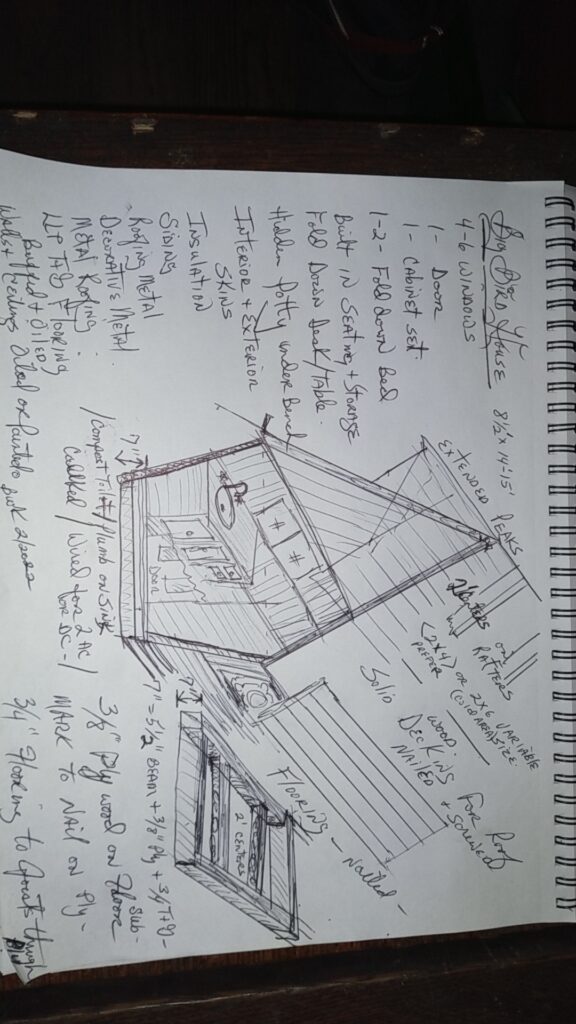 Big Bird House 8 1/2' x 14'-15'
4-6 WINDOWS
1- DOOR
1- CABINET SET.
1-2- FOLD DOWN BED
BUILT IN SEATING + STORAGE
FOLD DOWN DESK/TABLE.
HIDDEN POTTY UNDER BENCH
INTERIOR + EXTERIOR
SKINS
INSULATION
SIDING
ROOFING METAL
DECORATIVE METAL
METAL ROOFING
T+G FLOORING
Buffed + OILED
Walls + Ceilings Oiled or Painted
EXTENDED PEAKS
2' Centers on
RAFTERS
(2x4) OR 2x6 VARIABLE
PREFER (COLD AREA SIZE
Solid
WOOD
DECKING
NAILED
+ SCREWED
FOR ROOF
DOOR
7"
/Compost Toilet / Plumb on Sink
CAULKED / Wired for 2 AC
FOR DC-/
FLOORING - NAILED -
2' CENTERS
7"
7" = 5 1/2" BEAM + 3/8" Ply + 3/4 T+G -
3/8" Plywood on Sub-
floor
MARK TO NAIL ON Ply -
3/4" Flooring to Joists through
Ply